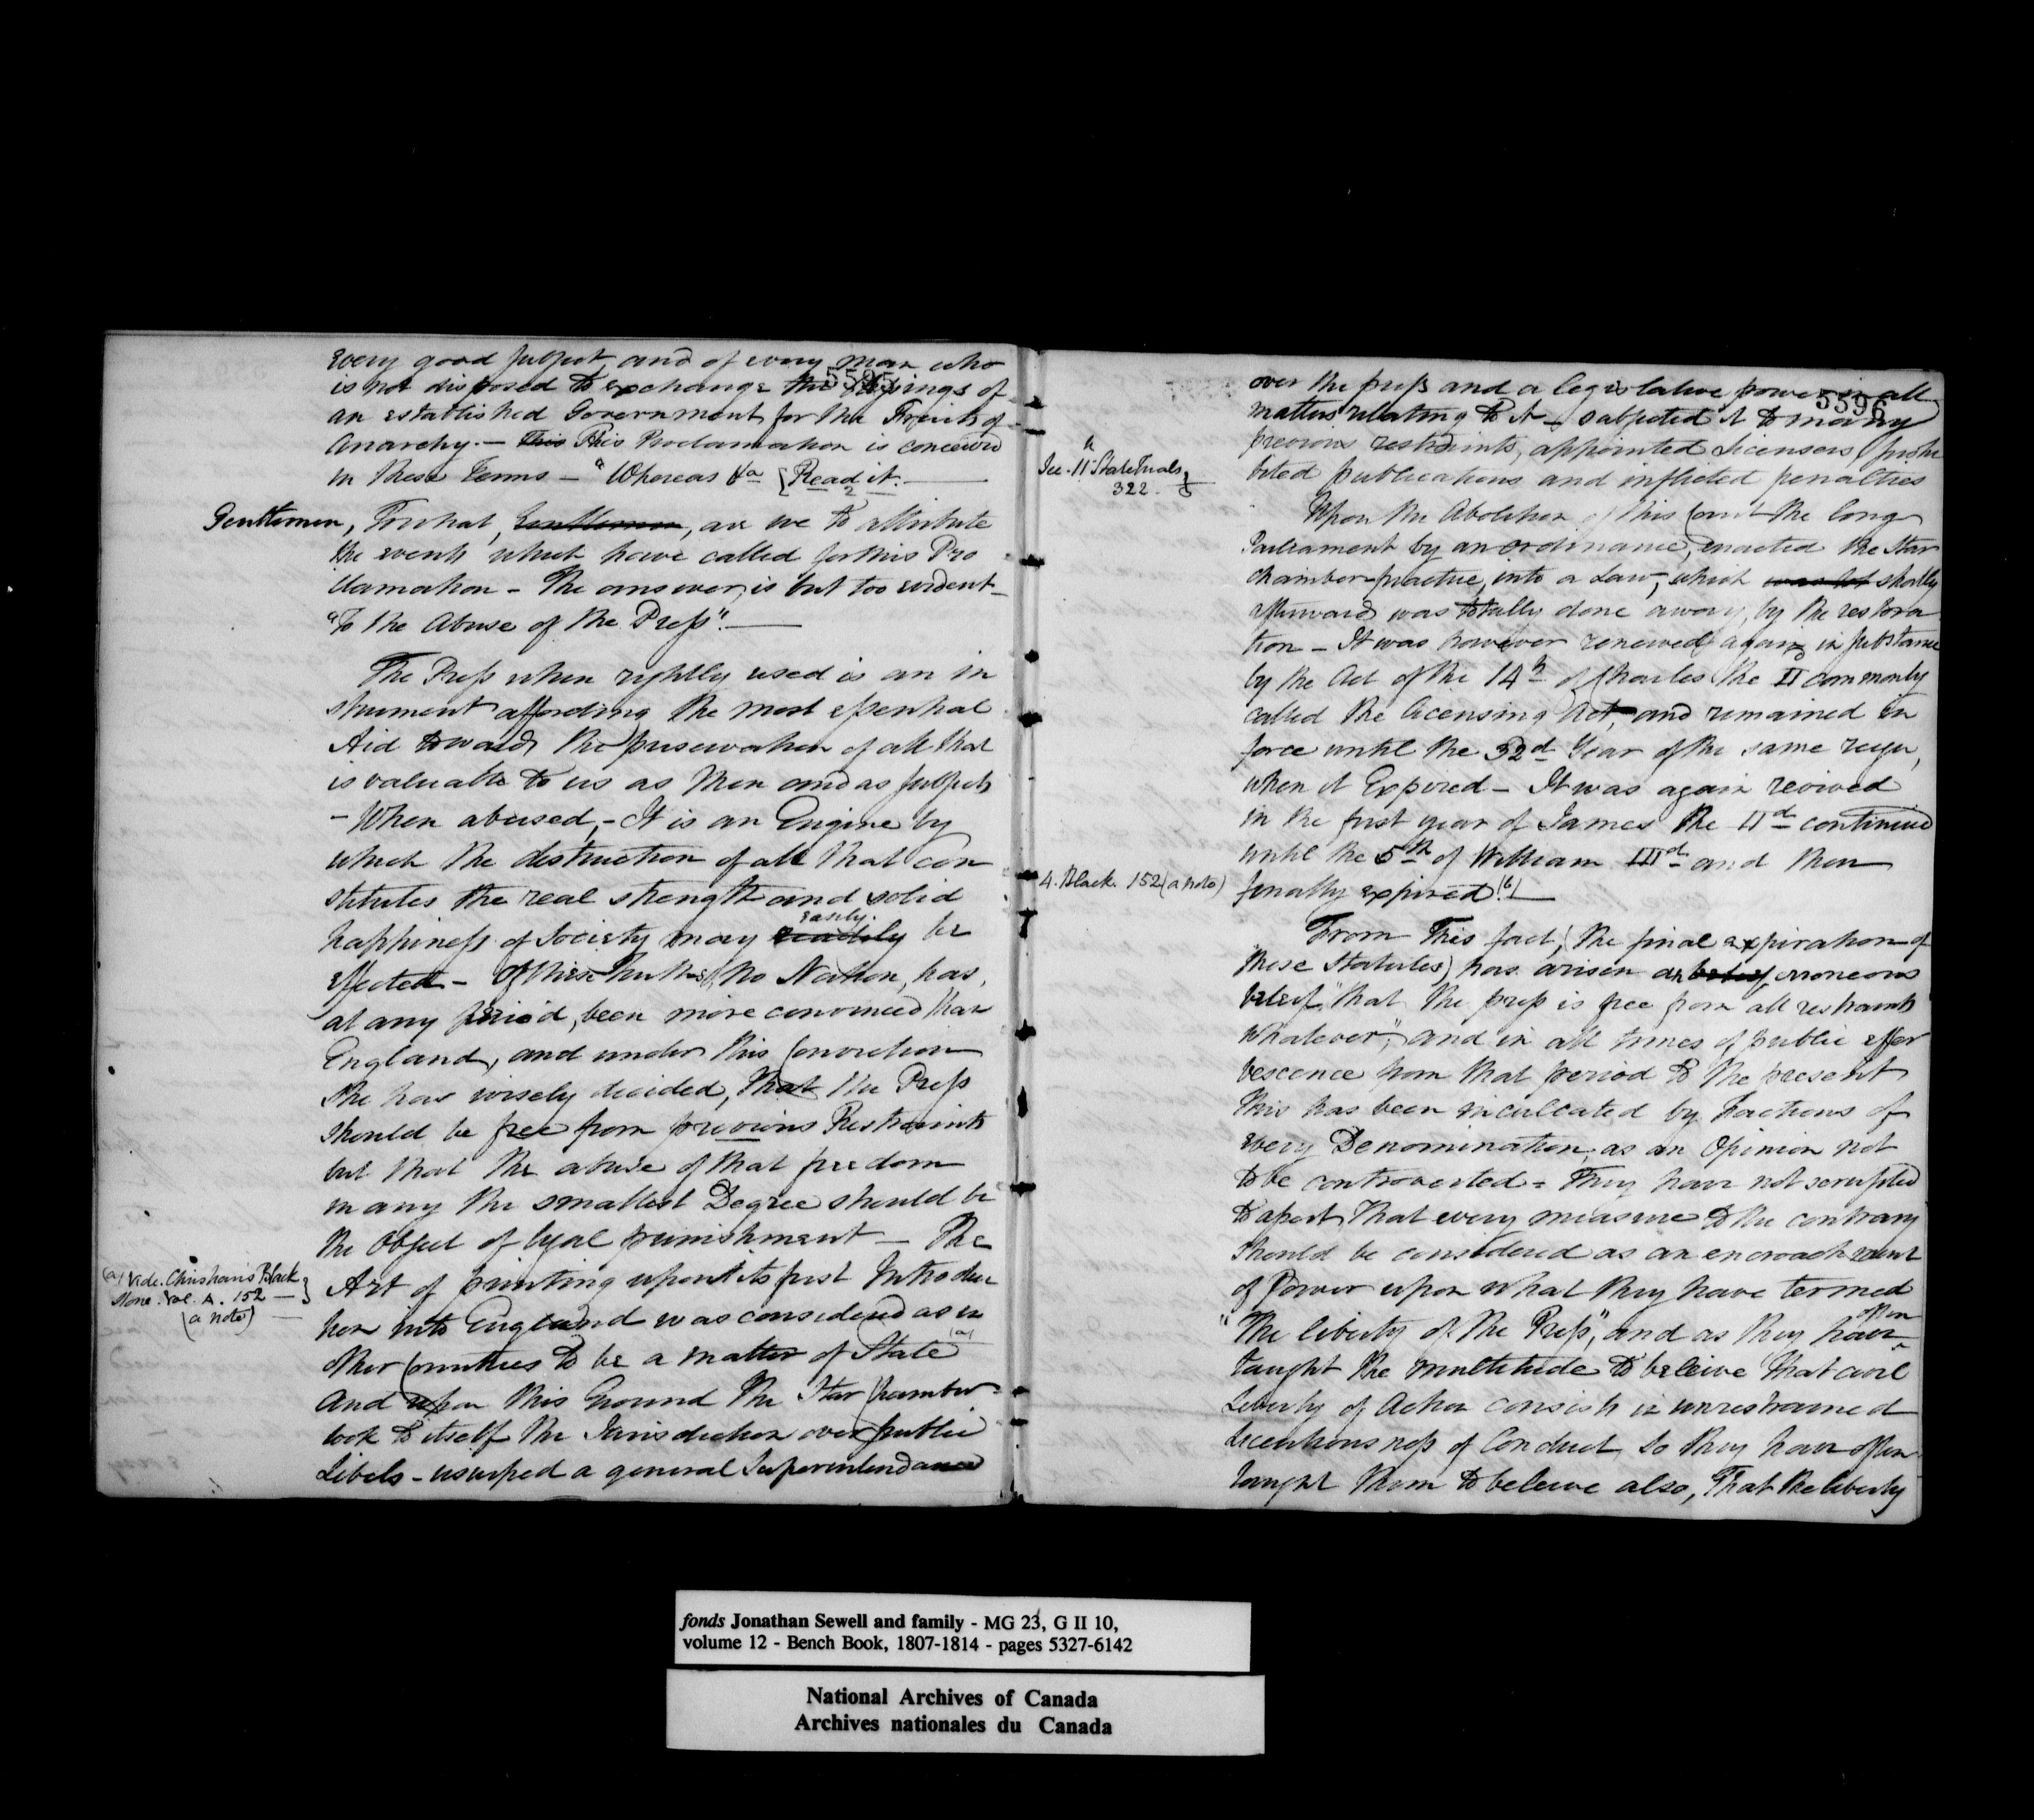 every good subject, and of every man who
5595
is not disposed to exchange the blessings of
an established Government for the Fruits of
Anarchy. — This This Proclamation is conceived
in these Terms — "Whereas &a [Read it. —
Gentlemen, To what, Gentlemen, are we to attribute
the events which have called for this Pro
clamation - The answer, is but too evident -
"To the Abuse of the Press". —
The Press when rightly used is an in
strument affording the most essential
Aid towards the preservation of all that
is valuable to us as Men and as subjects
- When abused, - It is an Engine by
which the destruction of all that con
stitutes the real strength and solid
easily.
happiness of Society may readily be
effected - Of these truths, no Nation, has,
at any period, been more convinced than
England, and under this Conviction
She has wisely decided, that the Press
should be free from previous Restraints
but that the abuse of that freedom
in any the smallest Degree should be
the Object of legal punishment - The
(a) Vide. Christian's Black
stone. Vol. 4. 152 —
(a note) —
Art of printing upon its first Introduc
tion into England was considered as in
other Countries to be a matter of State (a)
and upon this Ground the Star Chamber
took to itself the Jurisdiction over public
Libels - usurped a general Superintendance
over the press and a legislative power in all
5596
matters relating to it - subjected it to many
previous restraints, appointed Licensers, prohi
bited publications and inflicted penalties
See. 11 State Trials
322.
Upon the Abolition of this Court the long
Parliament by an ordinance, enacted the Star
chamber-practice, into a Law, which was but shortly
afterwards was totally done away, by the restora
tion - It was however renewed again in substance
by the Act of the 14th of Charles the II commonly
called the licensing Act, and remained in
force until the 32d Year of the same reign,
when it Expired - It was again revived
in the first year of James the IId continued
until the 5th of William IIId and then
4. Black. 152 (a note)
finally expired (b) —
From this fact, (the final expiration of
these Statutes) has arisen an belief erroneous
belief, "that the press is free from all restraints
whatever", and in all times of public effer
vescence from that period to the present
this has been inculcated by Factions of
every Denomination, as an Opinion not
to be controverted - They have not scrupled
to assert, That every measure to the contrary
should be considered as an encroachment
of Power upon what they have termed
often
"The liberty of the Press", and as they have
taught the multitude to beleive that civil
Liberty of Action consists in unrestrained
licentiousness of Conduct so they have often
taught them to beleive also, That the liberty
fonds Jonathan Sewell and family - MG 23, G II 10,
volume 12 - Bench Book, 1807-1814 - pages 5327-6142
National Archives of Canada
Archives nationales du Canada